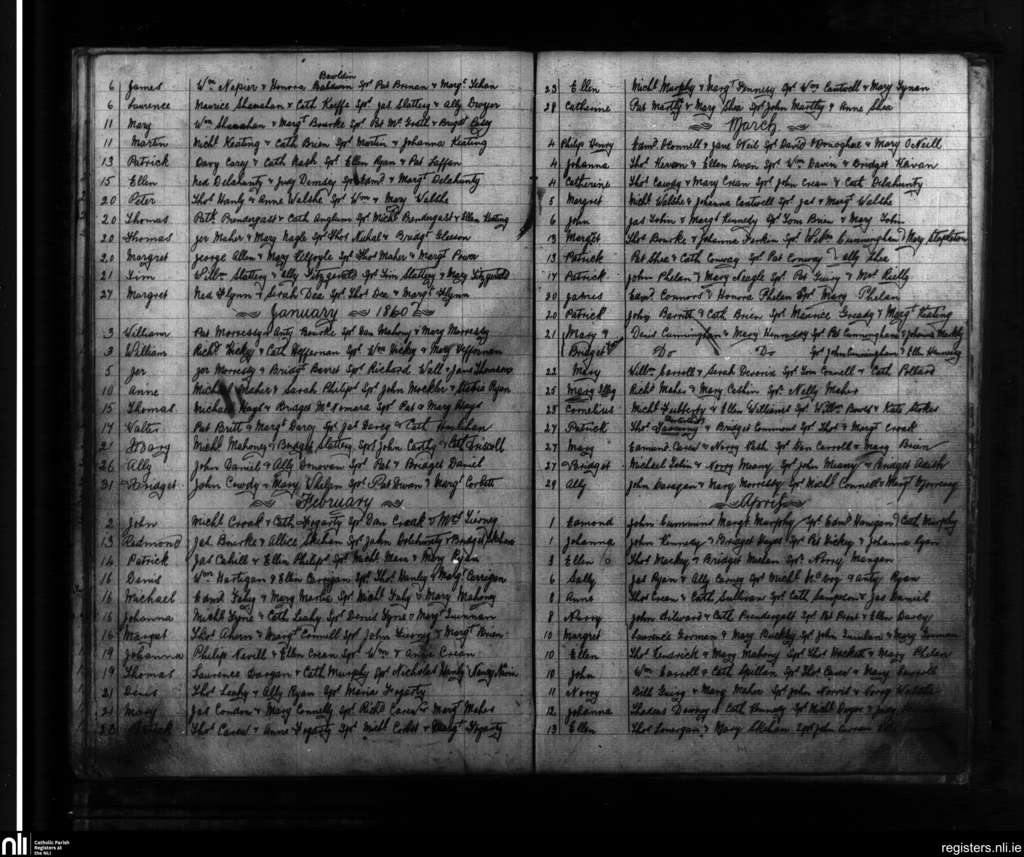 Bawldin
6 James Wm Napier & Honora Baldwin Spr Pat Brenan & Margt
6 Laurence Maurice Shanahan & Cath Keeffe Spr Jas Slattery & Ally Dwyer
11 Mary Wm Shanahan & Margt Bourke Spr Pat Mc Grath & Bridgt Casey
11 Martin Michl Keating & Cath Brien Spr Martin & Johanna Keating
13 Patrick Davy Carey & Cath Nash Spr Ellen Ryan & Pat Laffan
15 Ellen Ned Delahunty & Judy Demsey Spr Edmd & Margt Delahunty
20 Peter Thos Hanly & Anne Walshe Spr Wm & Mary Walshe
20 Thomas Patk Prendergast & Cath Anghim Spr Michl Prendergast & Ellen Keating
20 Thomas Jer Maher & Mary Nagle Spr Thos & Bridgt Gleeson
20 Margret George Allen & Mary Spr Thos Maher & Margt Power
21 Tim Willm Slattery & Ally Fitzgerald Spr Tim Slattery & Mary Fitzgerald
27 Margret Ned Flynn & Sarah Dea Spr Thos Dea & Margt Flynn
January 1860
3 William Pat Morressy & Anty Bourke Spr Dan Mahony & Mary Morressy
3 William Richd Hicky & Cath Heffernan Spr Wm Hicky & Mary Heffernan
5 Jer Jer Morresy & Bridgt Barret Spr Richard Wall & Jane
10 Anne Michl Maher & Sarah Philips Spr John Mockler & Ryan
15 Thomas Michael Hays & Bridget Mc Nomara Spr Pat & Mary Hays
17 Walter Pat Britt & Margt Darcy Spr Jas Darcy & Cath
21 Mary Michl Mahoney & Bridget Slattery Spr John Carthy & Cath Driscoll
26 Ally John Daniel & Ally Donovan Spr Pat & Bridget Daniel
31 Bridget John Cawdy & Mary Whelan Spr Pat Dwan & Margt Corbett
February
2 John Michl Croak & Cath Fogarty Spr Dan Croak & Mrs Tierney
13 Redmond Jas Bourke & Allice Skehan Spr John Delahunty & Bridget Skehan
14 Patrick Jas Cahill & Ellen Philips Spr Michl Mara & Mary Ryan
16 Denis Wm Hartigan & Ellen Corrigan Spr Thos Hanly & Margt Corrigan
16 Michael Edmd Fahy & Mary Martin Spr Michl Fahy & Mary Mahony
16 Johanna Michl Tyne & Cath Leahy Spr Denis Tyne & Margt
16 Margret Thos Ahern & Margt Connell Spr John & Margt Brien
19 Johanna Philip Nevill & Ellen Crean Spr Wm & Anne Crean
19 Thomas Laurence Dargan & Cath Murphy Spr Nicholas Hanly & Nancy
21 Denis Thos Leahy & Ally Ryan Spr Maria Fogarty
21 Mary Jas Condon & Mary Connelly Spr Richd Carew & Margt Maher
Thos Carew & Anne Fogarty Spr Michl Corbet & Margt Fogarty
23 Ellen Michl Murphy & Margt Spr Wm Cantwell & Mary Tynan
28 Catherine Pat Marthy & Mary Shea Spr John Marthy & Anne Shea
March
4 Philip Henry Edmd Connell & Jane Neil Spr David O'Donoghoe & Mary O'Neill
4 Johanna Thos & Ellen Dwan Spr Wm & Bridget
4 Catherine Thos Cawdy & Mary Crean Spr John Crean & Cath Delahunty
5 Margret Michl Walshe & Johana Cantwell Spr Jas & Margt Walshe
6 John Jas Tohin & Margt Kennedy Spr Tom Brien & Mary Tohin
13 Margret Thos Bourke & Johanna Larkin Spr Willm Cunningham & Mary Stapleton
13 Patrick Pat Shea & Cath Conway Spr Pat Conway & Ally Shea
17 Patrick John Phelan & Mary Neagle Spr Pat & Mrs Reilly
20 James Edmd Connors & Honora Phelan Spr Mary Phelan
20 Patrick John Barrett & Cath Brien Spr Maurice & Margt Keating
21 Mary & Denis Cunningham & Mary Hennessy Spr Pat Cunningham & Johanna
Bridget Do Do Spr John Cunningham & Ellen Hennessy
22 Mary Willm Carroll & Sarah Spr Tom Connell & Cath Pollard
25 Mary Richd Maher & Mary Spr Nelly Maher
25 Cornelius Michl & Ellen Williams Spr Willm & Kate Stokes
27 Patrick Thos & Bridget Commons Spr Thos & Margt Croak
27 Mary Edmund Carew & Norry Spr Dan Carroll & Mary Brien
27 Bridget Michael Tohin & Norry Meany Spr John Meany & Bridget
29 Ally John & Mary Morressy Spr Michl Connell & Margt Morressy
April
1 Edmond John Cummins Margt Murphy Spr Edmd Hanigan & Cath Murphy
1 Johanna John Kennedy & Bridget Hayes Spr Pat Hickey & Johanna Ryan
3 Ellen Thos Mackey & Bridget Spr Norry Mangan
6 Sally Jas Ryan & Ally Carney Spr Michl & Anty Ryan
8 Anne Thos Crean & Cath Sullivan Spr Cath & Jas Daniel
8 Norry John & Cath Prendergast Spr Pat & Ellen Darcy
10 Margret Laurence Gorman & Mary Buckley Spr John Quinlan & Mary Gorman
10 Ellen Thos Kendrick & Mary Mahony Spr Thos Hacket & Mary Phelan
10 John Wm Carroll & Cath Spillan Spr Thos Carew & Mary Carroll
11 Norry Bill & Mary Maher Spr John Norris & Norry Walshe
12 Johanna Thadeus & Cath Kennedy Spr Michl Dwyer & Judy
13 Ellen Thos Lonergan & Mary Skehan Spr John Curran
nli Catholic Parish
Registers at
the NLI
registers.nli.ie